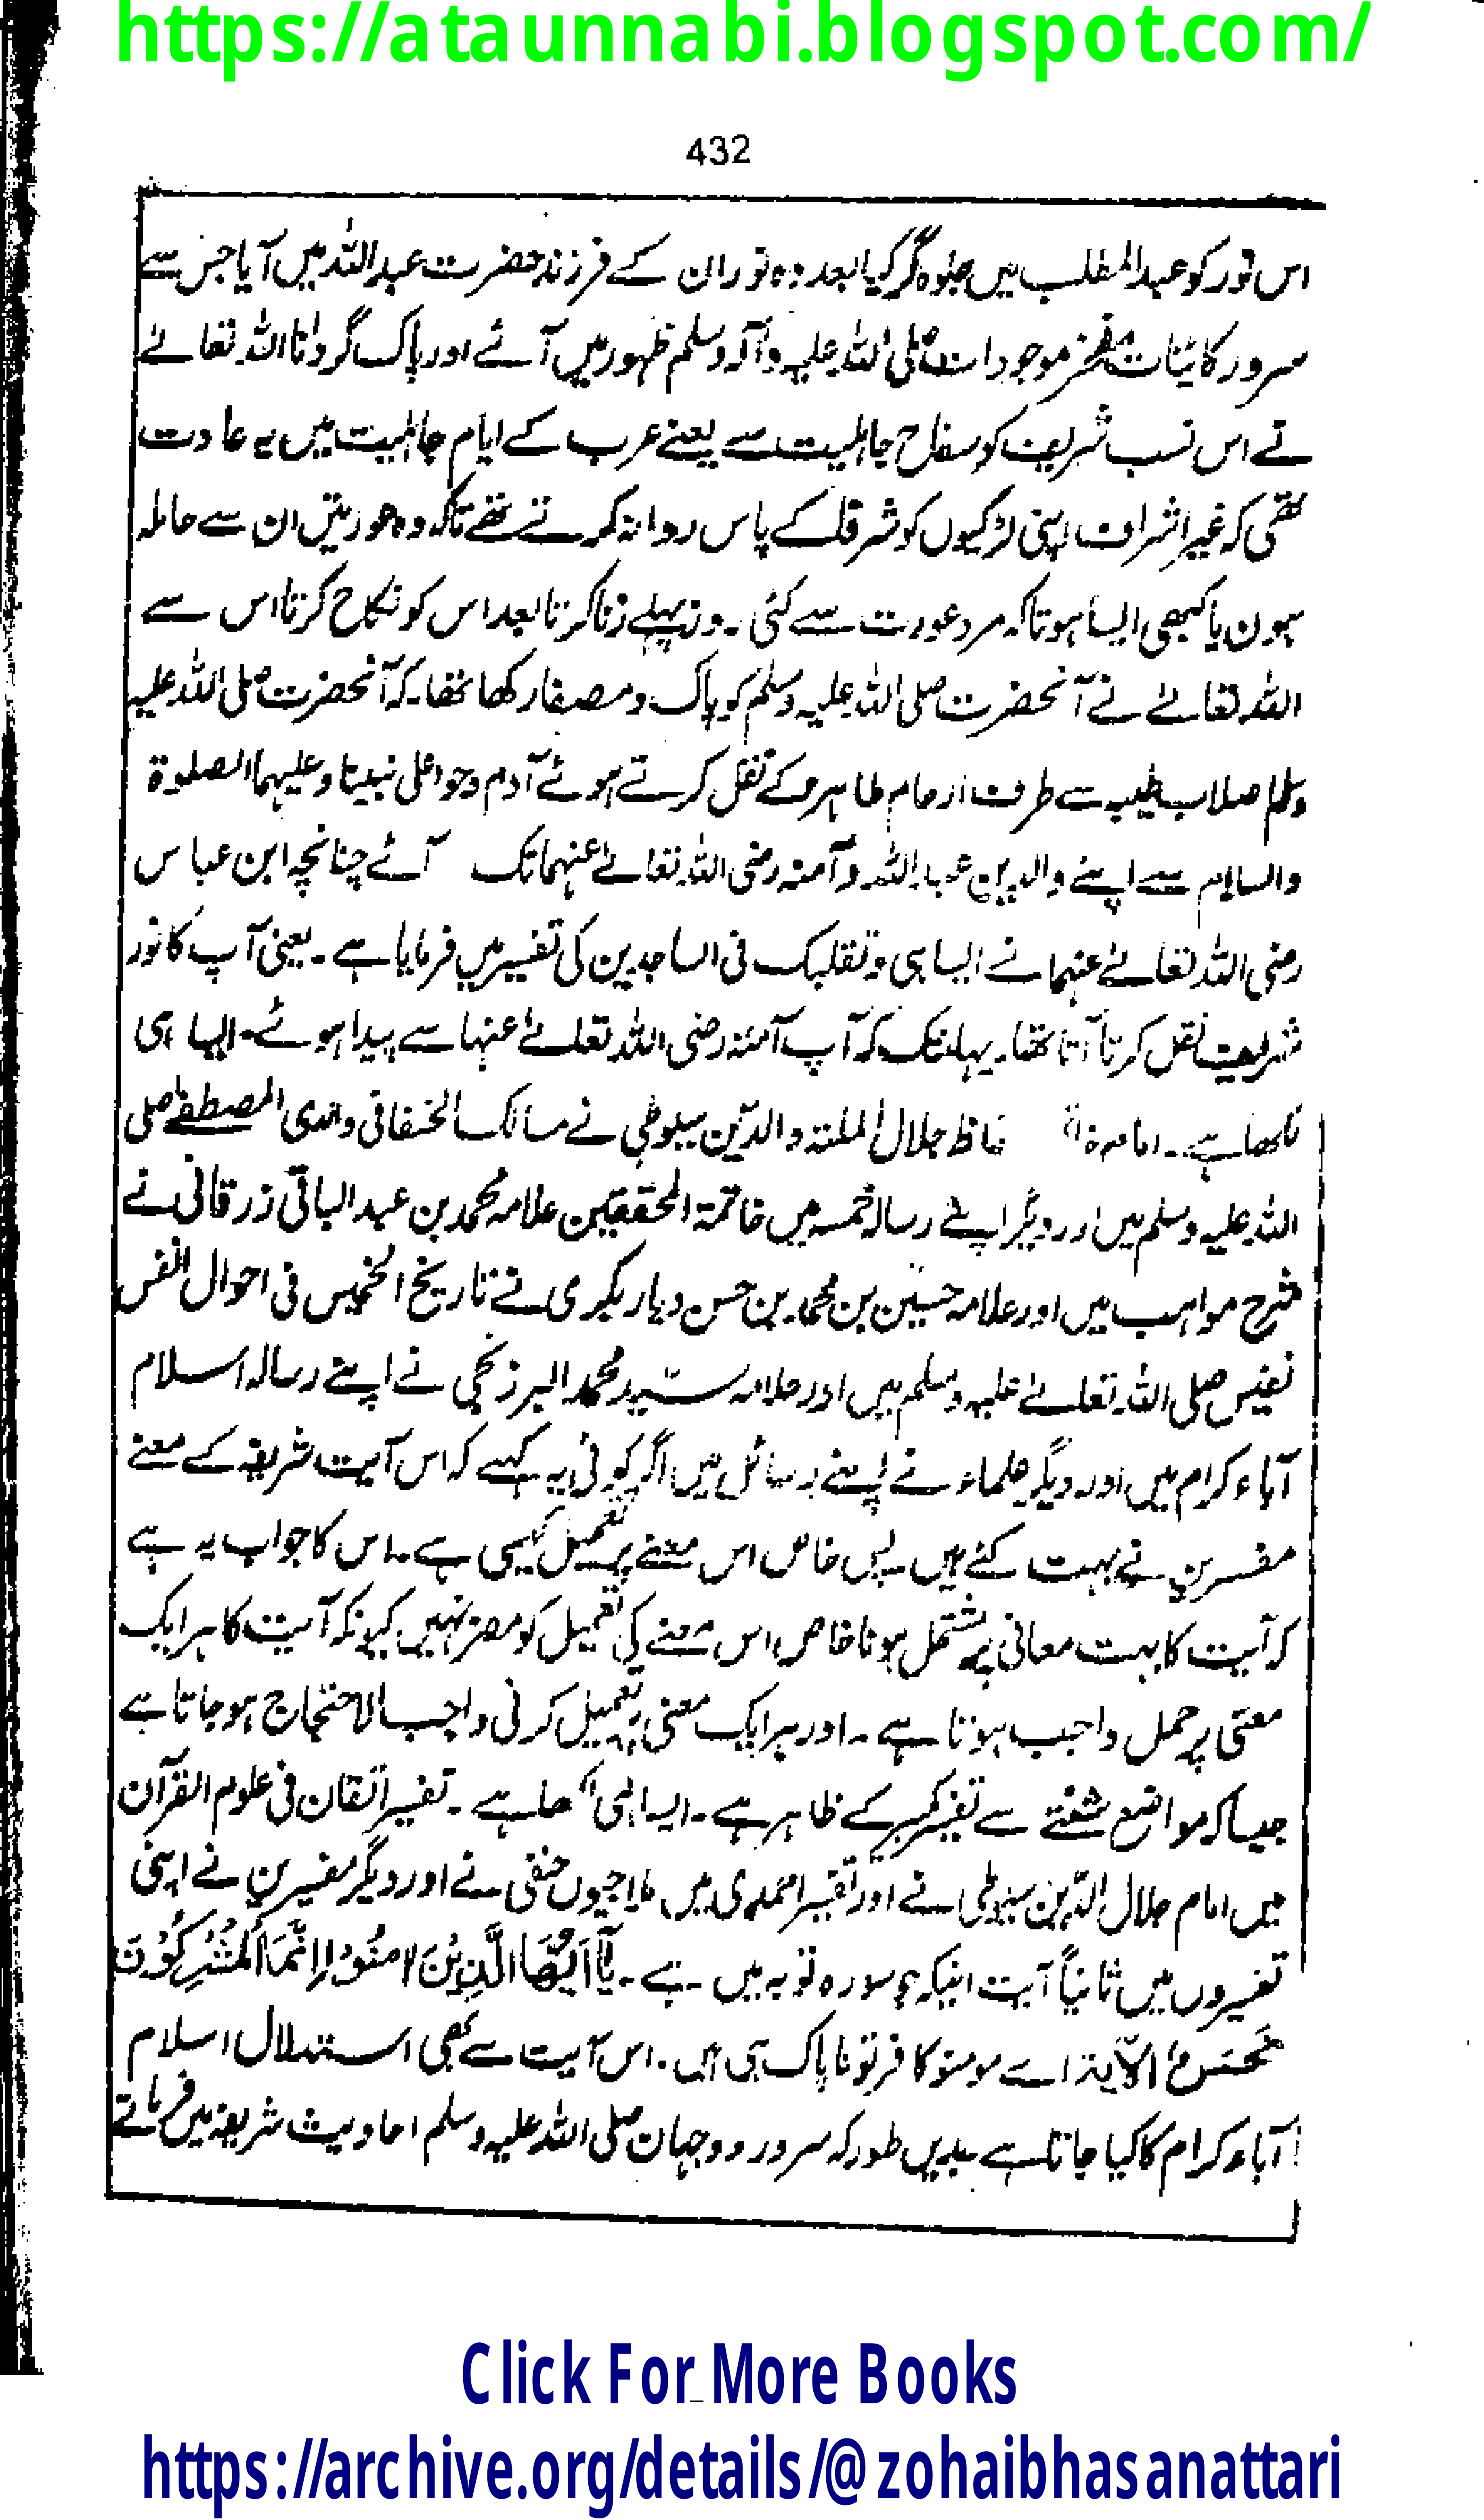 https://ataunnabi.blogspot.com/
432
اس نور کو عبدالمطلب میں جلوہ گر کیا بعد وہ نور ان کے فرزند حضرت عبداللہ میں آیا جس سے
سرور کائنات مفخر موجودات صلی اللہ علیہ وآلہ وسلم ظہور میں آئے اور پاک گردانا اللہ تعالےٰ
نے اس نسب شریف کو سفاح جاہلیت سے یعنے عرب کے ایام جاہلیت میں یہ عادت
تھی کہ غیر اشراف اپنی لڑکیوں کو شرفا کے پاس روانہ کرتے تھے تاکہ وہ عورتیں ان سے حاملہ
ہون یا کبھی ایسا ہوتا کہ مرد عورت سے کئی ۔ ونہ پہلے زنا کرتا بعد اس کو نکاح کرتا اس سے
اللہ تعالےٰ نے آنحضرت صلی اللہ علیہ وسلم کو پاک و مصفا رکھا تھا۔ کہ آنحضرت صلی اللہ علیہ
وسلم اصلاب طیبہ سے طرف ارحام طاہرہ کے نقل کرتے ہوئے آدم و حوا علی نبینا و علیہما الصلوۃ
والسلام سے اپنے والدین عبداللہ و آمنہ رضی اللہ تعالےٰ عنہما تک آئے چنانچہ ابن عباس
رضی اللہ تعالےٰ عنہما نے ایسا ہی وتقلبک فی الساجدین کی تفسیر میں فرمایا ہے ۔ یعنی آپ کا نور
شریف نقل کرتا آتا تھا۔ یہانتک کہ آپ آمنہ رضی اللہ تعالےٰ عنہا سے پیدا ہوئے۔ ایسا ہی
لکھا ہے ۔ امام حافظ جلال الملتہ والدین سیوطی نے مسالک الحنفا فی والدی المصطفےٰ صلی
اللہ علیہ وسلم میں اور دیگر اپنے رسالہ خمسہ میں خاتمۃ المحققین علامہ محمد بن عبدالباقی زرقانی نے
شرح مواہب میں اور علامہ حسین بن محمد بن حسن دیار بکری نے تاریخ الخمیس فی احوال انفس
نفیس صلی اللہ تعالےٰ علیہ وسلم میں اور علامہ سید محمد البرزنجی نے اپنے رسالہ اسلام
آباء کرام میں اور دیگر علماء نے اپنے رسائل میں اگر کوئی یہ کہے کہ اس آیت شریفہ کے معنے
مفسرین نے بہت کئے ہیں پس خاص اس معنے پر تعمیل کیسی ہے۔ اس کا جواب یہ ہے
کہ آیت کا بہت معانی پر مشتمل ہونا خاص اس معنے کی تعمیل کو مضر نہیں کیونکہ آیت کا ہر ایک
معنی پر حمل واجب ہوتا ہے ۔ اور ہر ایک معنی پر تعمیل کرنی واجب الاحتجاج ہو جاتا ہے
جیسا کہ مواضع شفتے سے تفسیر کبیر کے ظاہر ہے ۔ ایسا ہی لکھا ہے ۔ تفسیر اتقان فی علوم القرآن
میں امام جلال الدین سیوطی نے اور تفسیر احمدی میں ملا جیون حنفی نے اور دیگر مفسرین نے اپنی
تفسیروں میں ثانیاً آیت اینکہ جو سورہ توبہ میں ہے ۔ یَآ اَیُّھَا الَّذِیْنَ اٰمَنُوْا اِنَّمَا الْمُشْرِکُوْنَ
نَجَسٌ الآیۃ اے مومنو کافر تو ناپاک ہی ہیں ۔ اس آیت سے بھی استدلال اسلام
آباء کرام کا کیا جاتا ہے بدیں طور کہ سرور دو جہان صلی اللہ علیہ وسلم احادیث شریفہ میں فرماتے
Click For More Books
https://archive.org/details/@zohaibhasanattari